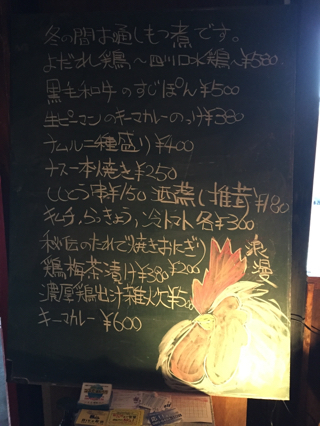 冬の間お通しもつ煮です。
よだれ鶏〜四川口水鶏〜¥580
黒毛和牛のすじぽん¥500
生ピーマンのキーマカレーのっけ¥380
ナムル二種盛り¥400
ナス一本焼き¥250
ししとう串¥150 酒煮し椎茸¥180
キムチ、らっきょう、冷トマト各¥300
秘伝のたれで焼きおにぎり
¥200
鶏梅茶漬け¥380
濃厚鶏出汁雑炊¥5
キーマカレー¥600
浪漫